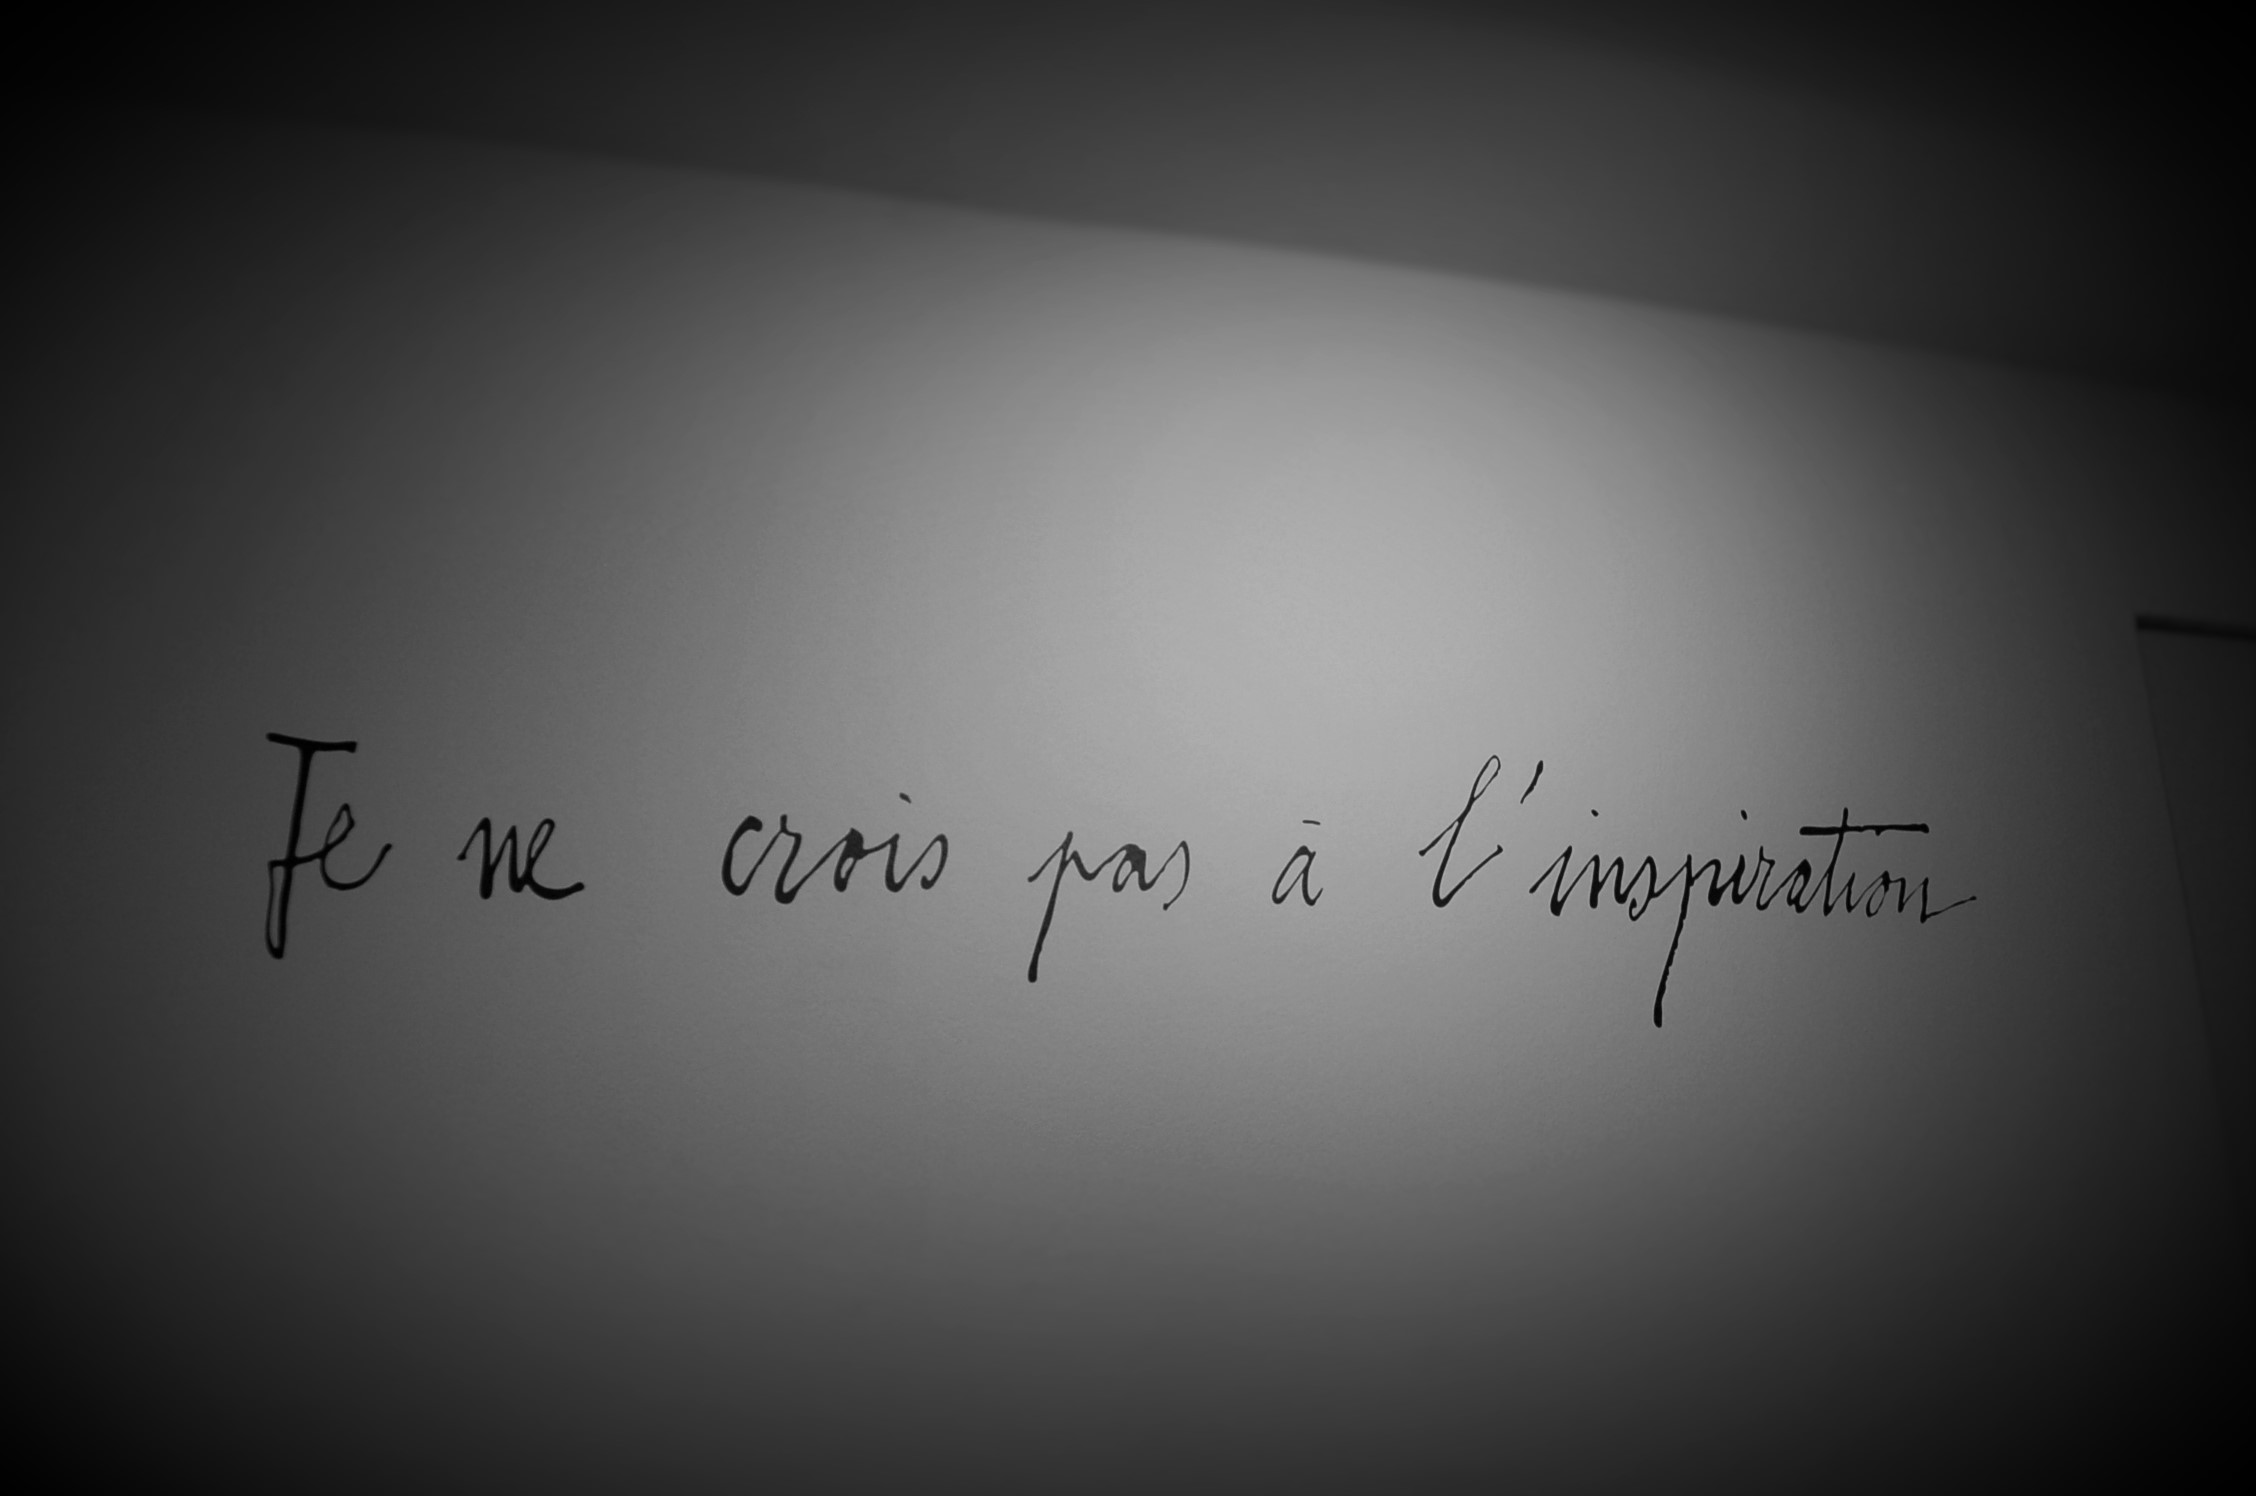 Je ne crois pas à l'inspiration